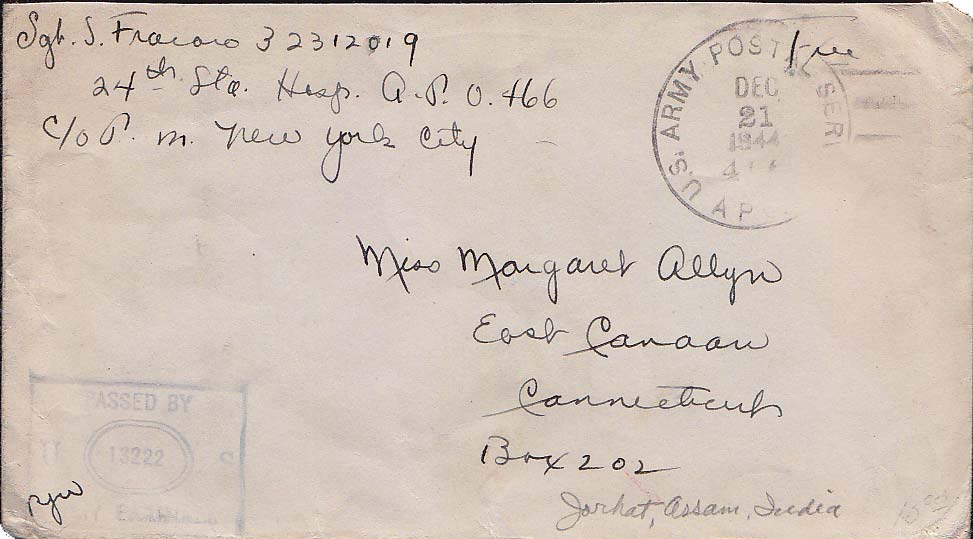 Sgt. S. Fracaro 32312019
24th Sta. Hosp. A.P.O. 466
c/o P. m. New York City
Free
U.S. ARMY POSTAL SER
DEC
21
1944
A P
Miss Margaret Allyn
East Canaan
Connecticut
Box 202
PASSED BY
13222 S
Jorhat, Assam, India